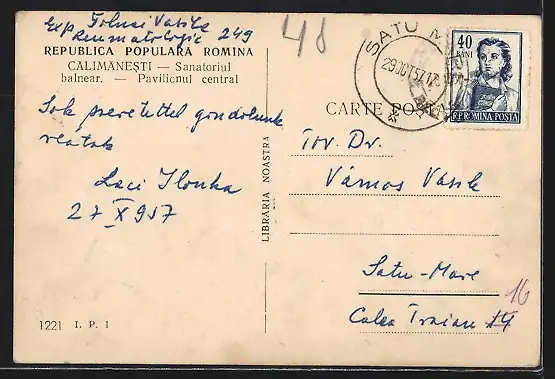 Exp Tolnai Vasile
Reumatologie 249
REPUBLICA POPULARA ROMINA
CALIMANEȘTI — Sanatoriul
balnear. — Pavilionul central
Sok szeretettel gondolunk
reatok
Laci Ilonka
27 X 957
1221 I. P. I
LIBRARIA NOASTRA
48
SATU M
29 OCT 57
40
BANI
R.P.ROMINA POSTA
CARTE POȘTA
Tov. Dr.
Vámos Vasile
Satu-Mare
Calea Traian 14
16